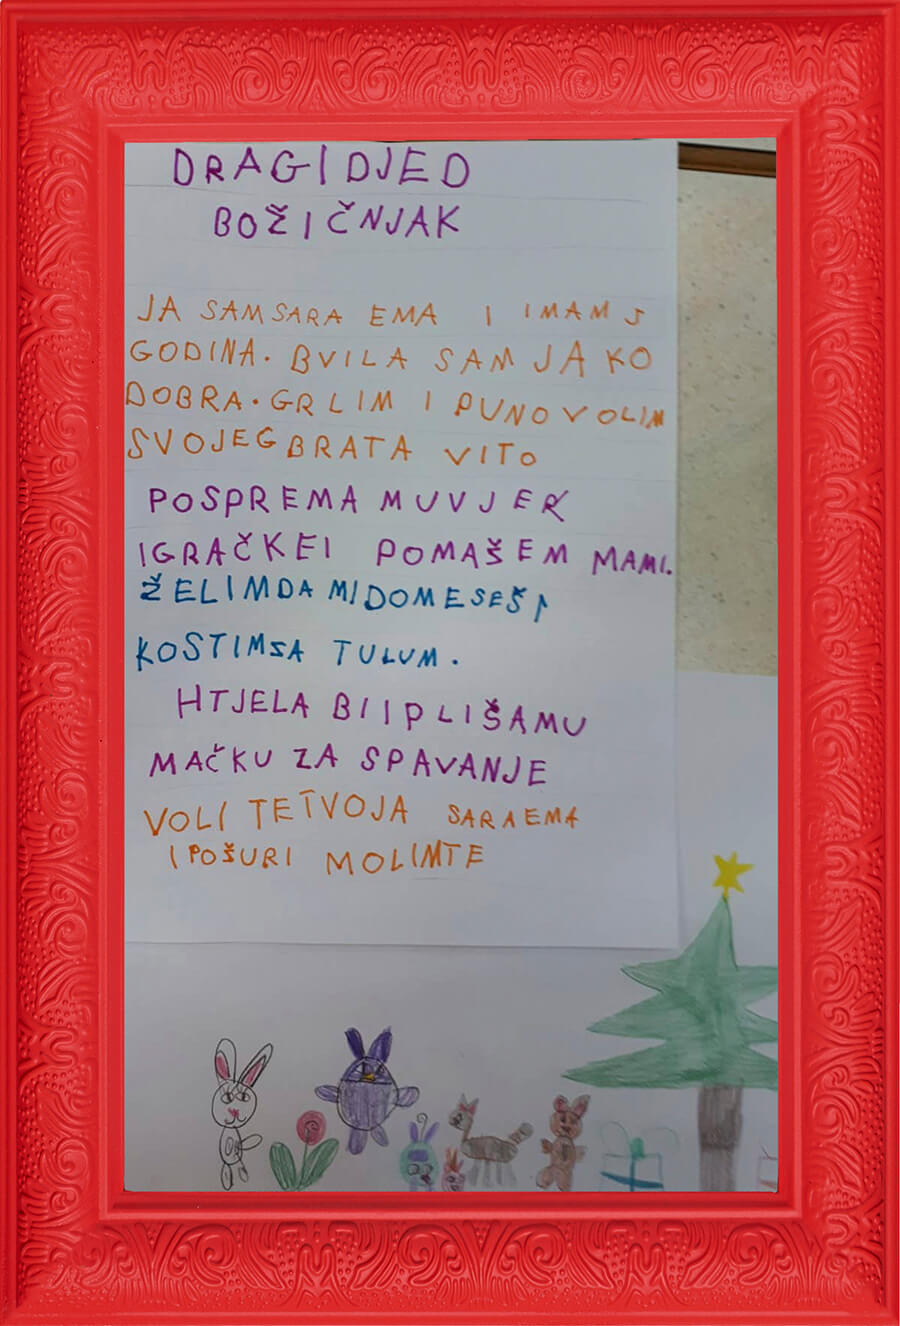 DRAGI DJED
BOŽIČNJAK
JA SAM SARA EMA I IMAM 5
GODINA. BVILA SAM JAKO
DOBRA. GRLIM I PUNO VOLIM
SVOJEG BRATA VITO
POSPREMA MUVJEK
IGRAČKE I POMAŠEM MAMI.
ŽELIM DA MI DOMESEŠ
KOSTIM SA TULUM.
HTJELA BI I PLIŠAMU
MAČKU ZA SPAVANJE
VOLI TE TVOJA SARA EMA
I POŠURI MOLIMTE